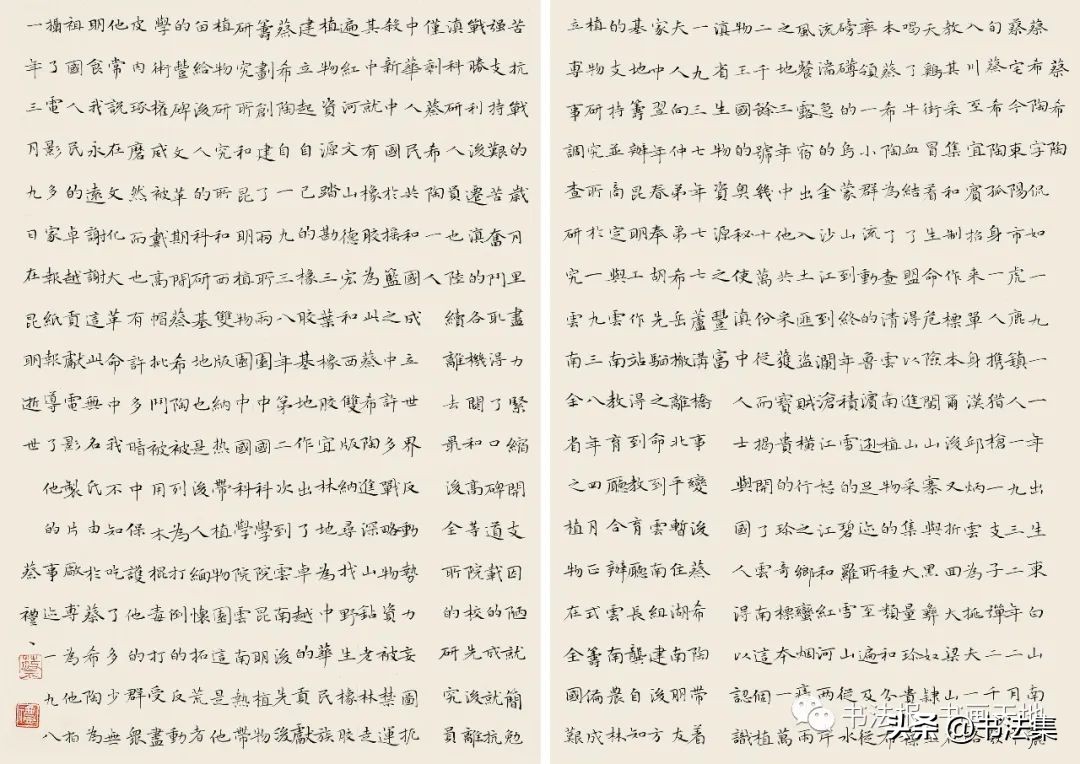 蔡希陶
蔡希陶字侃如一九一一年出生東白山南麓
蔡宅今東陽市虎鹿鎮人一九三二年二月
旬蔡希陶孤身一人携猎槍一支子彈二千
入川至宜賓抬来單身漢邱炳雲為挑夫一
教其采集和制作標本爾後又折回大梁山
天鷄街冒着生命危險闖山寨與黑彝奴隸
喝了牛血結了盟得以進山采集大量珍貴標
本蔡希陶為了查清雲南植物的種類和分布
率領一小群流動的魯濱逊足迹所至遍及從
磅礡的烏蒙山到終年積雪的碧羅雪山從水
流湍急的金沙江到瀾滄江怒江和紅河兩岸
風餐露宿出入土匪盗賊横行之鄉蠻烟瘴雨
之地三年中他共采獲寶貴的珍奇標本一萬
二千餘號幾十萬份從而揭開了雲南這個植
物王國的奥秘使滇中人士與國人得以認識
滇省生物資源之豐富
一九三七年七七蘆溝橋事變後蔡希陶帶着
夫人向仲弟第希岳搬離北平暫住湖南朋友
家中翌年春奉胡先駟之命到雲南組建後方
基地籌辦昆明工作站得到教育廳長龔自知
的支持並高定與雲南教育廳合辦雲南農林
植物研究所於一九三八年四月正式籌備成
立專事調查研究雲南全省之植物在全國艱
苦抗戰的歲月里盡力緊縮開支因陋就簡勉
强支持艱苦奮門耻得了口碑道載的成就抗
戰勝利後遷滇的各機關和高等院校先後離
滇科研人員也陸續離去最後全所的研究員
僅剩蔡希陶一人
中華人民共和國成立世界反動勢力妄圖扼
敘新中國於搖籃之中許多戰略物資被禁運
其中就有橡胶為此蔡希陶進深山鈷老林走
遍紅河文山德宏和西雙版納尋找野生橡胶
植物資源踏勘三葉橡胶宜林地為中華民族
建立起自己的橡胶基地作出了卓越的貢獻
蔡希陶自一九三八年第二次到雲南後先後
籌劃創建了兩所兩園中國科學院昆明植物
研究所和昆明植物園中國科學院雲南熱帶
植物研究所和西雙版納熱帶植物園這是他
苗給後人的科研基地也是後人緬懷拓荒者
的豐碑文革期間蔡希陶被列為打倒的反動
學術權威被戴高帽批鬥被用木棍毒打受盡
皮內琢磨然而也有許多暗中保護他的群眾
他常説在文化大革命中我不知吃了多少無
明食我永遠謝謝這此無名氏由於蔡希陶為
祖國人民的卓越貢獻電影製片廠專為他拍
攝了電影多家報紙報導了他的事迹一九八
一年三月九日在昆明逝世 蔡禮
书法报·书画天地
头条 @书法集